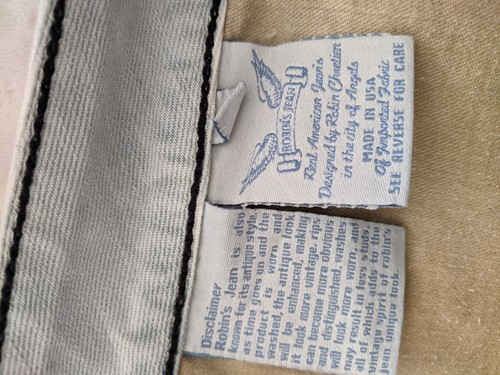 Disclaimer
Robin's Jean is also
known for its antique style.
as time goes on and the
product is worn and
washed, the antique look
will be enhanced, making
it look more vintage. rips
can become more obvious
and distinguished, washes
will look more worn, and
may result in less studs.
all of which ados to the
vintage spirit of robin's
jean unique look.
ROBIN'S JEAN
Real American Jean's
Designed by Robin Chretien
in the city of Angels
MADE IN USA
Of Imported Fabric
SEE REVERSE FOR CARE